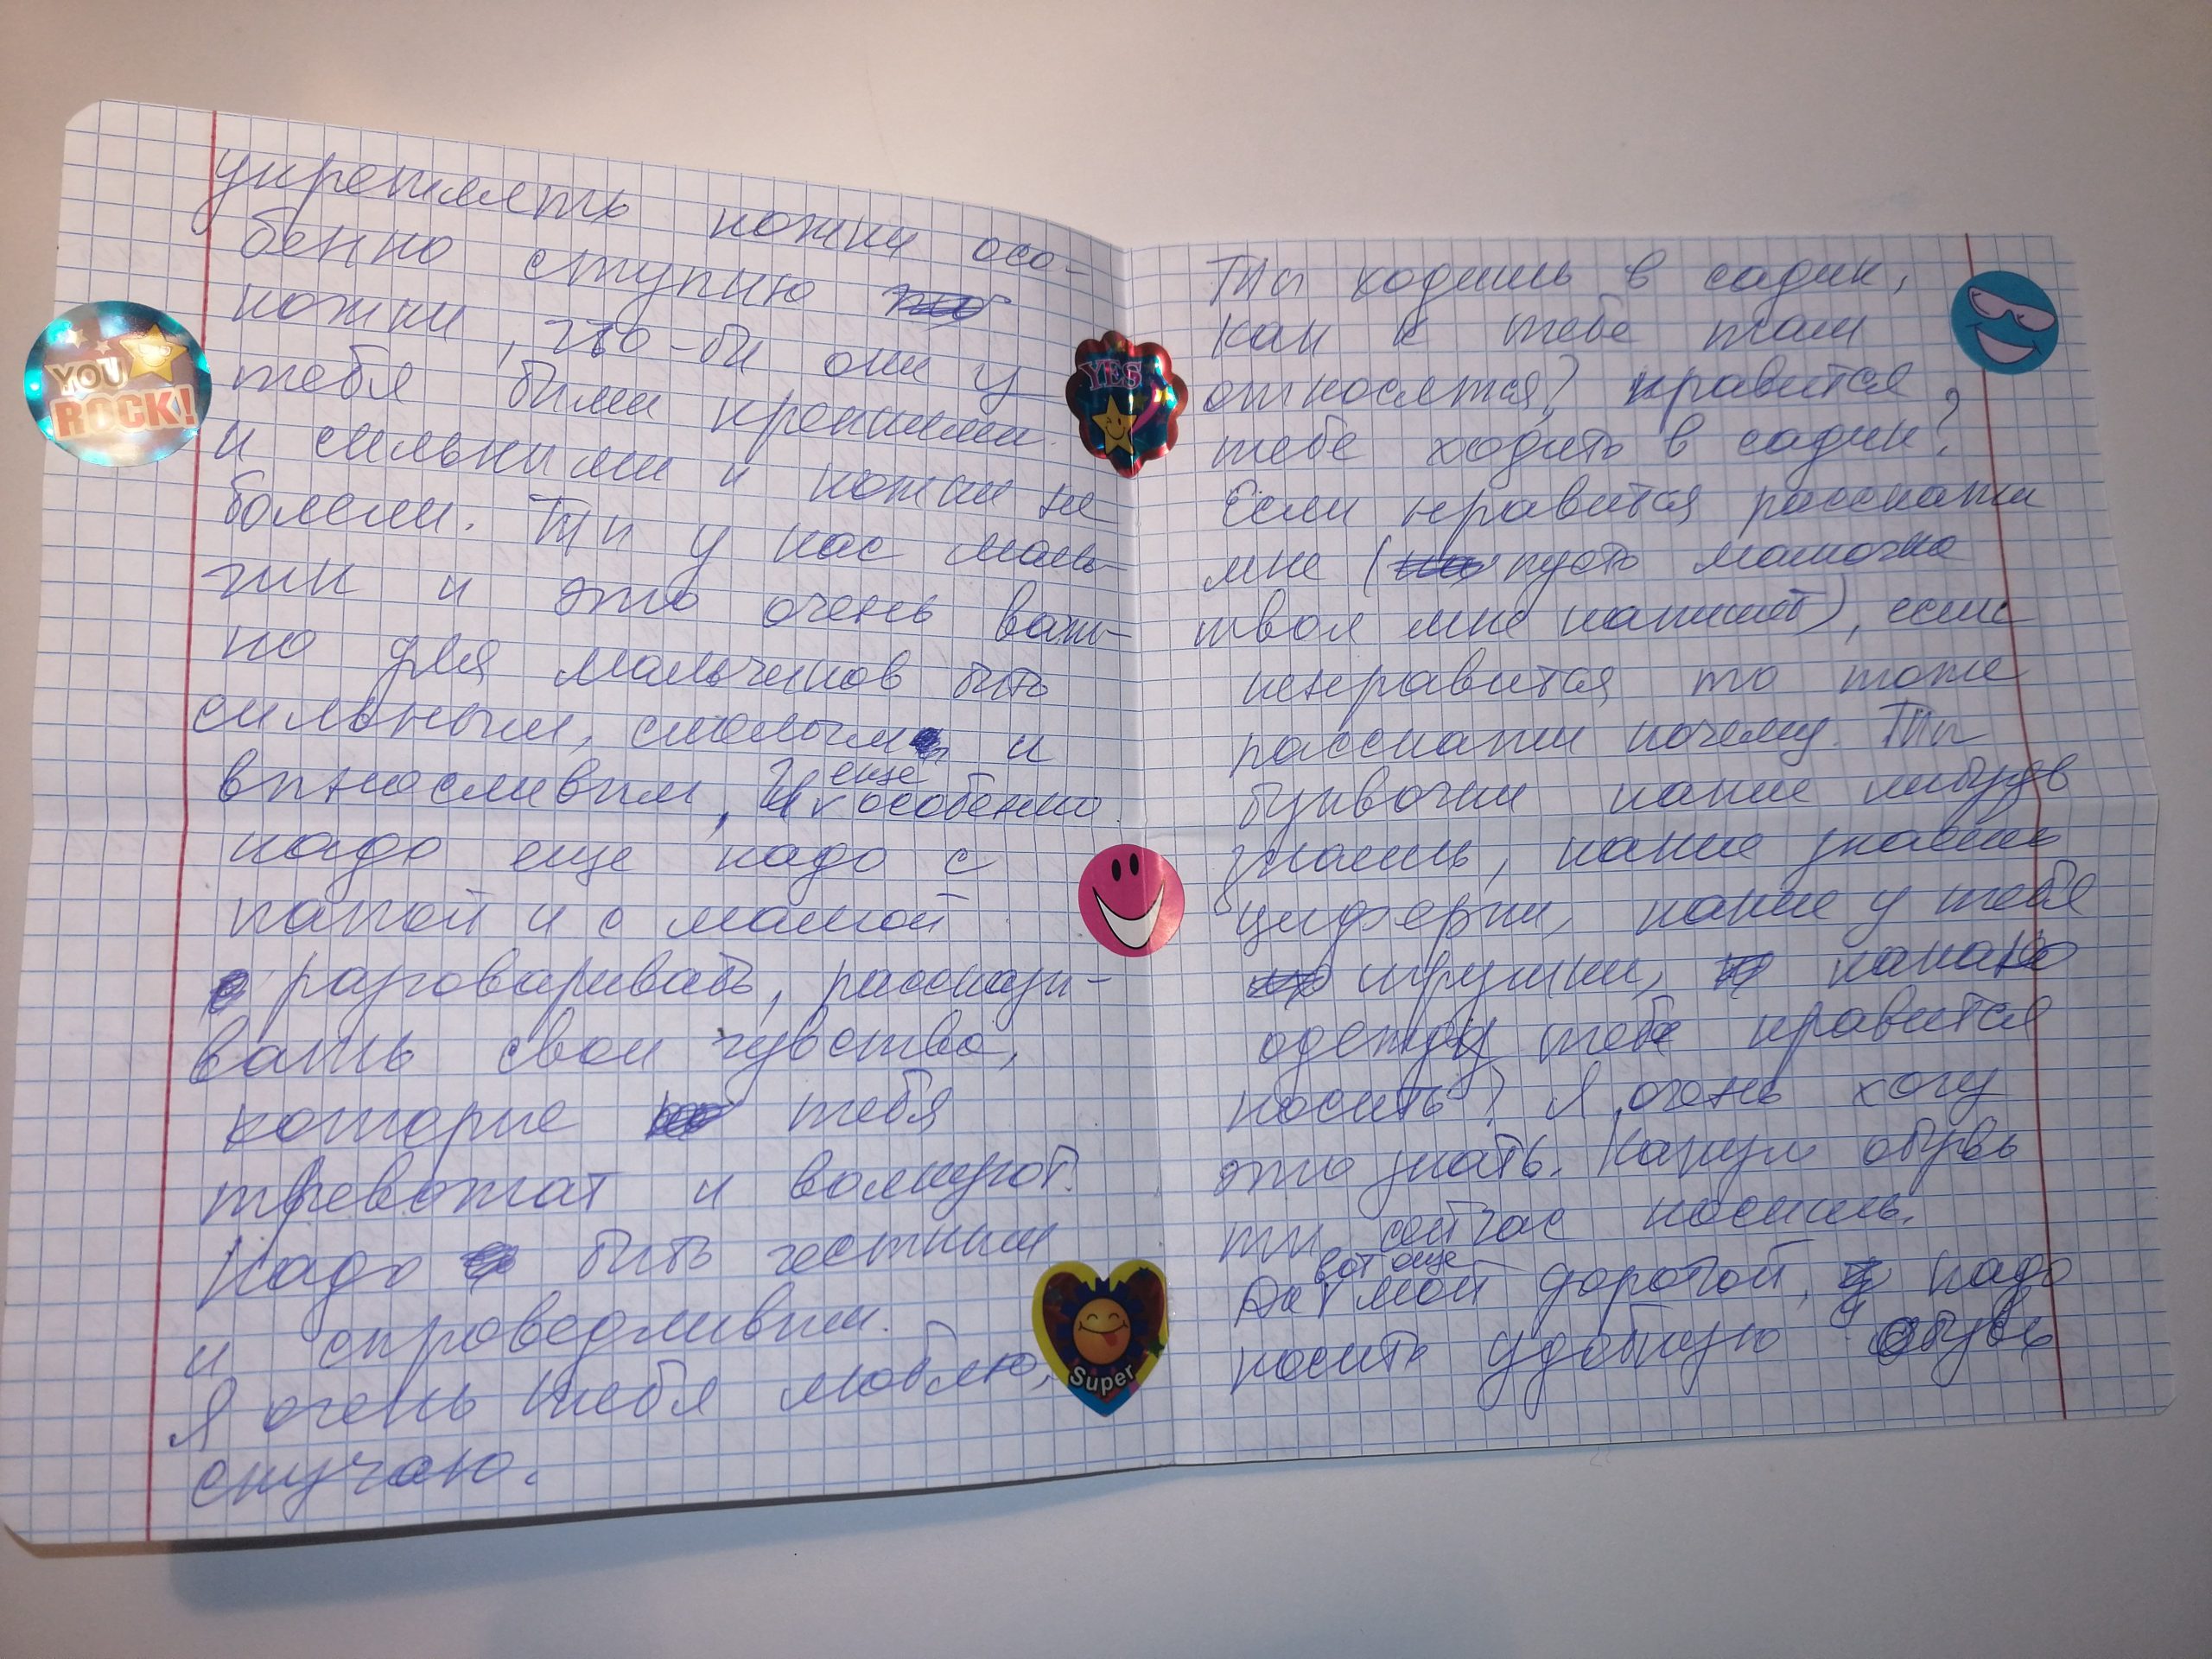 укреплять ножки осо-
бенно ступню
ножки, что-бы они у
тебя были крепкими
и сильними и ножки не
болели. Ты у нас маль-
чик и это очень важ-
но для мальчиков быть
сильным, смелым и
выносливым, И еще особенно
надо еще надо с
папой и с мамой
разговаривать, рассказы-
вать свои чувства,
которые тебя
тревожат и волнуют.
Надо быть честным
и справедливым.
Я очень тебя люблю,
скучаю.
Ты ходишь в садик,
как к тебе там
относятся? нравится
тебе ходить в садик?
Если нравится расскажи
мне (пусть мамочка
твоя мне напишет), если
ненравится то тоже
расскажи почему. Ты
буквочки какие нибудь
знаешь, какие знаешь
циферки, какие у тебя
игрушки, какаю
одежду тебе нравится
носить? Я очень хочу
это знать. Какую обувь
ты сейчас носишь.
Да вот еще мой дорогой, надо
носить удобную обувь
YOU
ROCK!
YES
Super